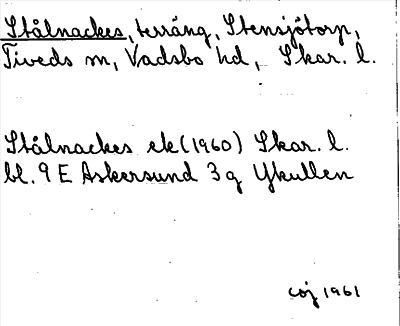 Stålnackes, terräng, Stensjötorp,
Tiveds sn, Vadsbo hd, Skar. l.
Stålnackes ek (1960) Skar. l.
bl. 9 E Askersund 3 g Ykullen
1961